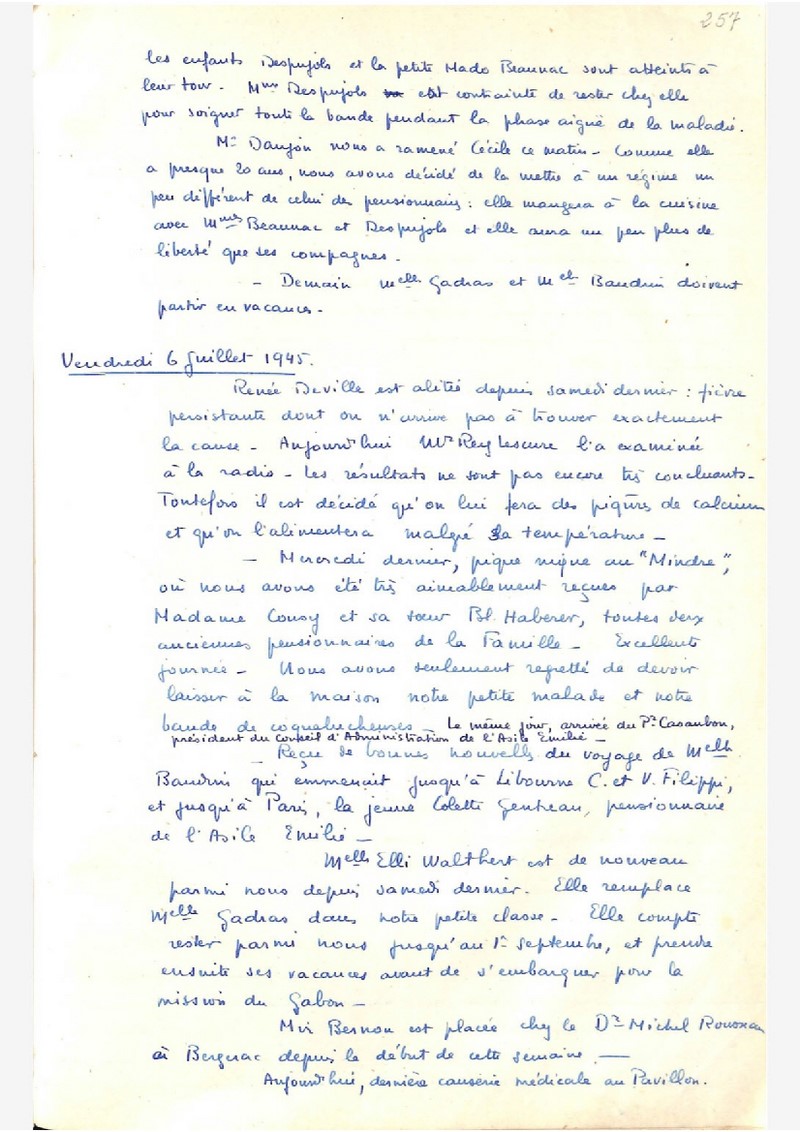 257
les enfants Despujols et la petite Mado Beaunac sont atteints à
leur tour. Mme Despujols est contrainte de rester chez elle
pour soigner toute la bande pendant la phase aiguë de la maladie.
Mr Daujon nous a ramené Cécile ce matin - Comme elle
a presque 20 ans, nous avons décidé de la mettre à un régime un
peu différent de celui des pensionnaires : elle mangera à la cuisine
avec Mmes Beaunac et Despujols et elle aura un peu plus de
liberté que ses compagnes.
- Demain Melle Gadras et Melle Baudrin doivent
partir en vacances.
Vendredi 6 Juillet 1945.
Renée Deville est alitée depuis samedi dernier : fièvre
persistante dont on n'arrive pas à trouver exactement
la cause - Aujourd'hui Mr Rey Lescure l'a examinée
à la radio - Les résultats ne sont pas encore très concluants -
Toutefois il est décidé qu'on lui fera des piqûres de calcium
et qu'on l'alimentera malgré sa température -
- Mercredi dernier, pique nique au "Mindre",
où nous avons été très aimablement reçues par
Madame Cousy et sa sœur Bl. Haberer, toutes deux
anciennes pensionnaires de la Famille - Excellente
journée - Nous avons seulement regretté de devoir
laisser à la maison notre petite malade et notre
bande de coquelucheuses - Le même jour, arrivée du Pr Casaubon,
président du Conseil d'Administration de l'Asile Emilie -
- Reçu de bonnes nouvelles du voyage de Melle
Baudrin qui emmenait jusqu'à Libourne C. et V. Filippi,
et jusqu'à Paris, la jeune Colette Gentreau, pensionnaire
de l'Asile Emilie -
Melle Elli Walthert est de nouveau
parmi nous depuis samedi dernier. Elle remplace
Melle Gadras dans notre petite classe - Elle compte
rester parmi nous jusqu'au 1er septembre, et prendre
ensuite ses vacances avant de s'embarquer pour la
mission du Gabon -
Bernon est placée chez le Dr Michel
à Bergerac depuis le début de cette semaine. -
Aujourd'hui, dernière causerie médicale au Pavillon.